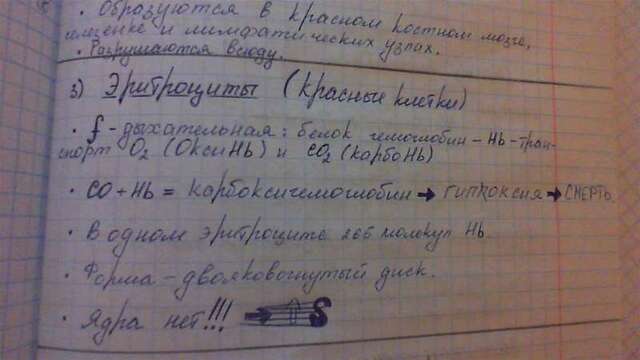 • Образуются в красном костном мозге,
селезёнке и лимфатических узлах.
• Разрушаются всюду.
3) Эритроциты (красные клетки)
• f - дыхательная: белок гемоглобин - Hb - тран-
спорт O2 (ОксиHb) и CO2 (карбоHb)
• CO + Hb = карбоксигемоглобин → гипоксия → СМЕРТЬ
• В одном эритроците 265 молекул Hb.
• Форма - двояковогнутый диск.
• Ядра нет!!! → ⇧ S